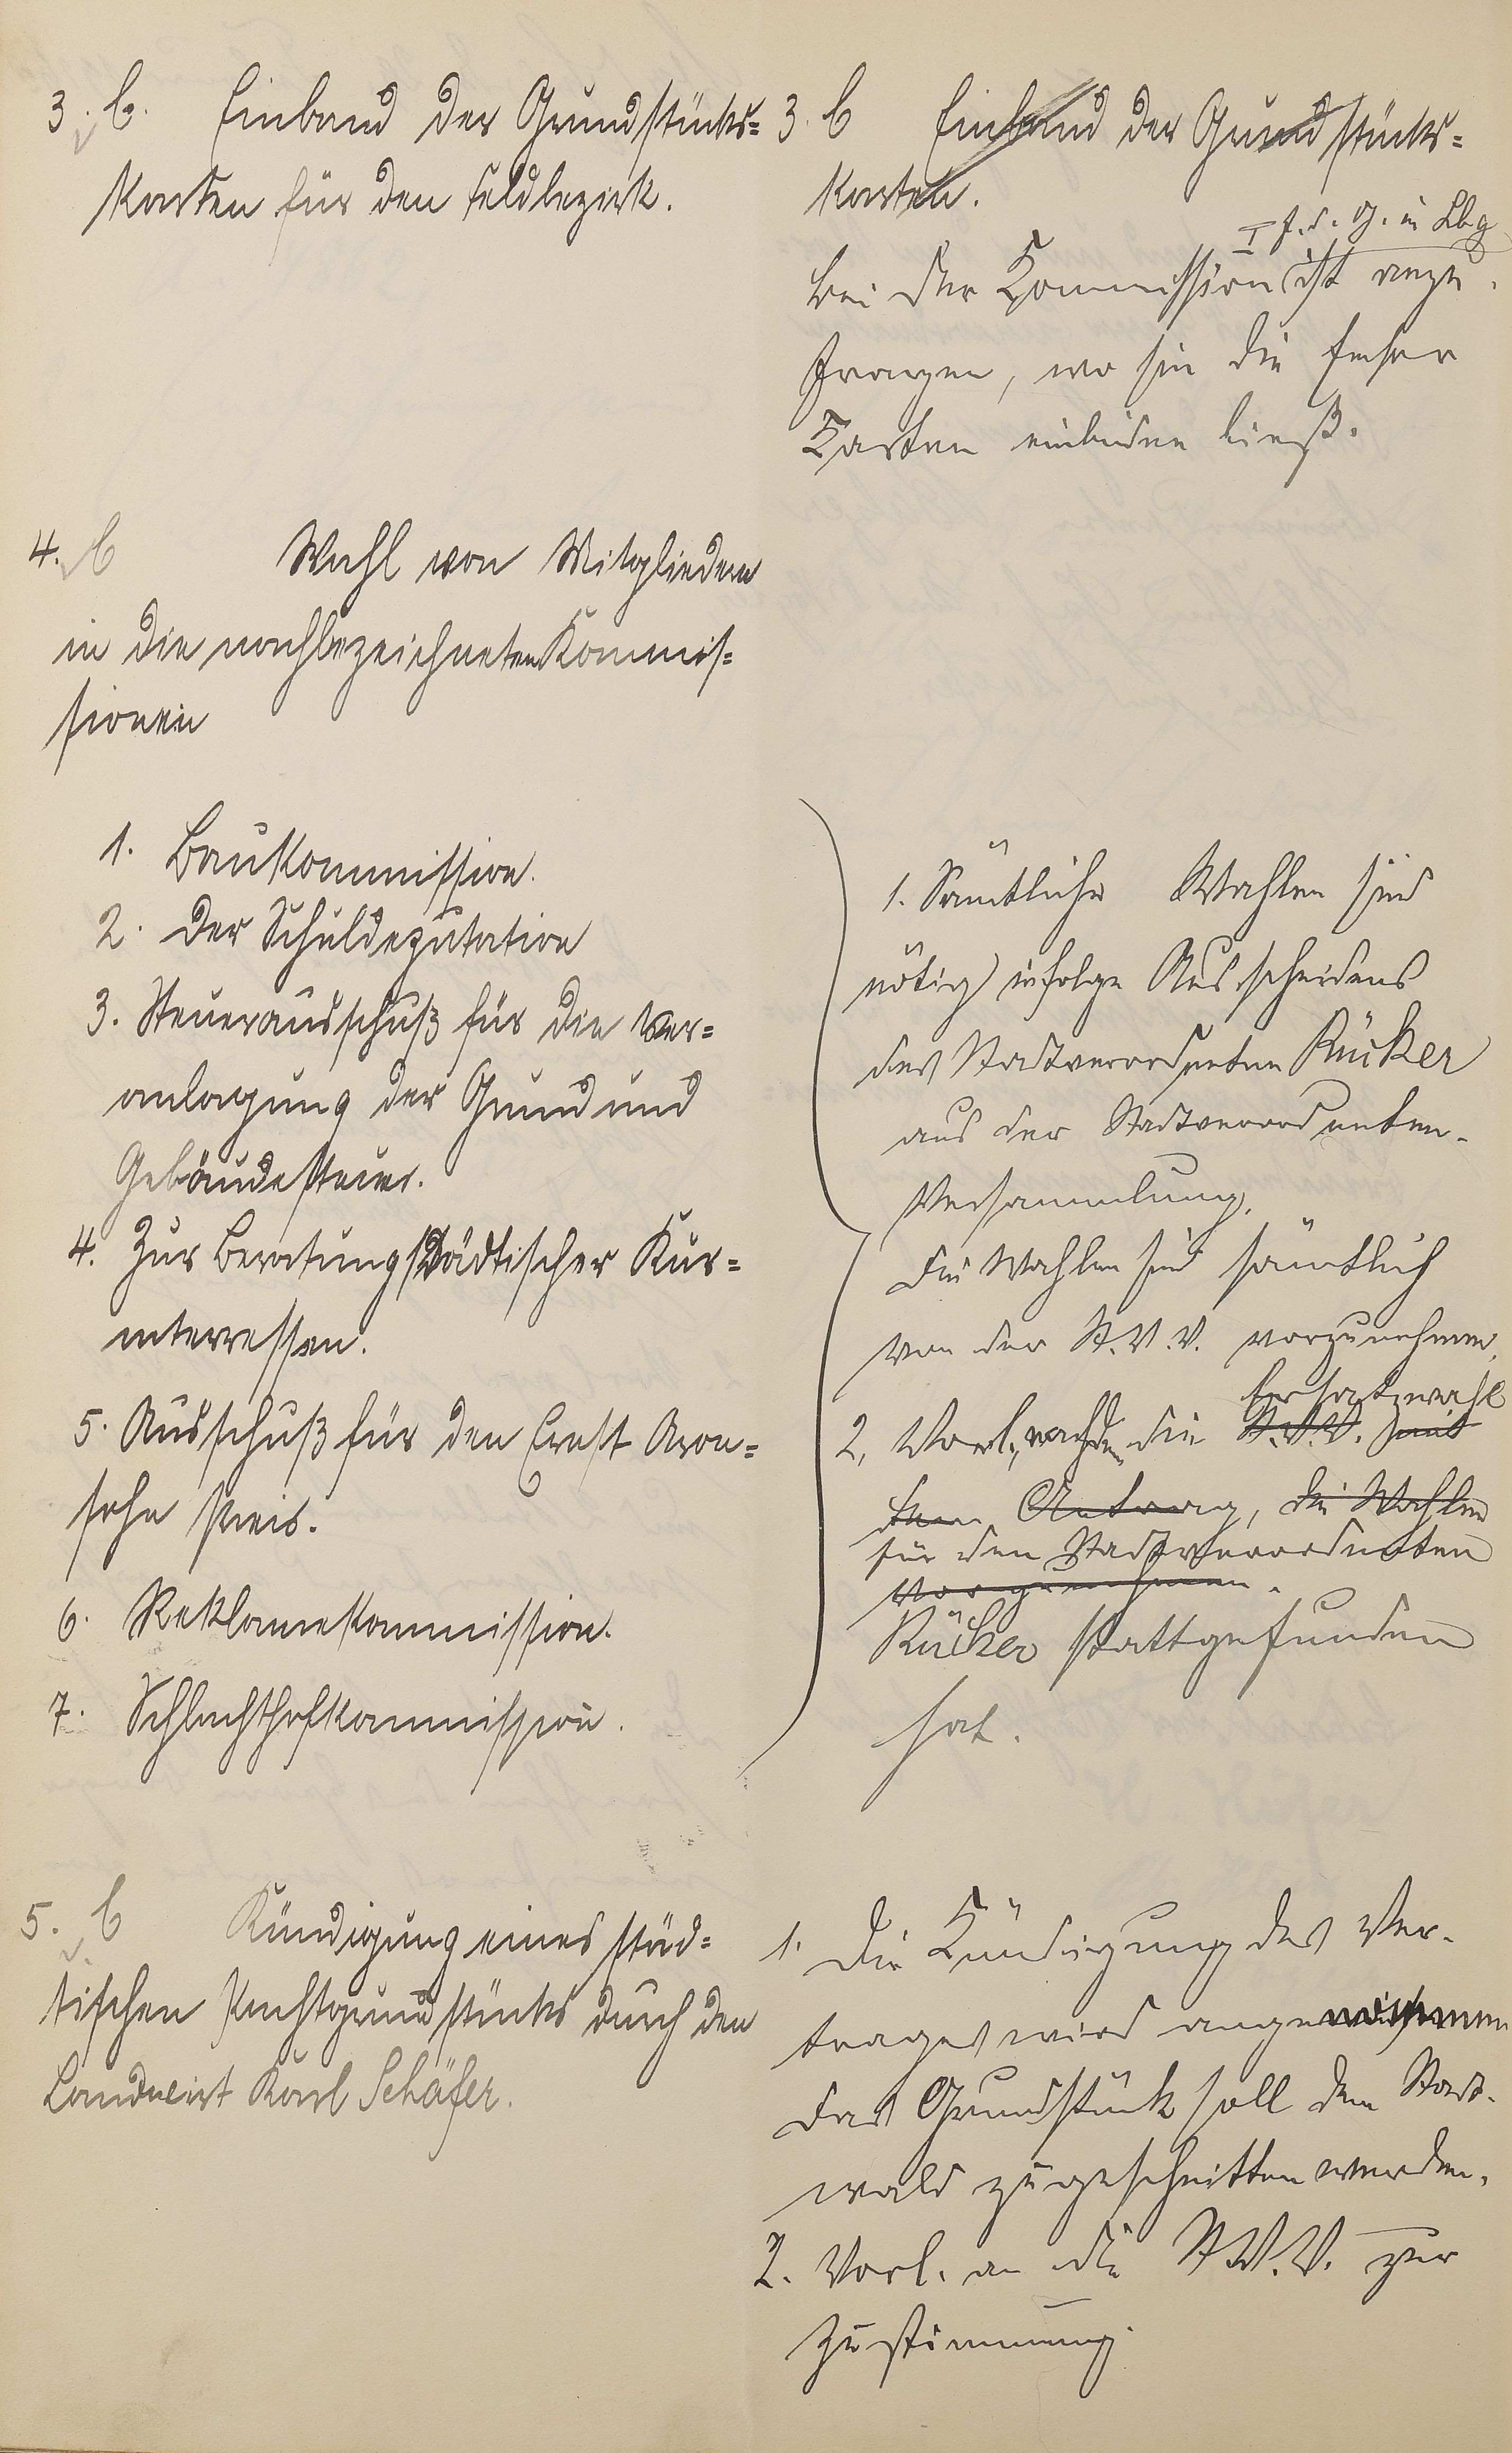 3. b. Einband der Grundstücks=
karten für den Feldbezirk.
3. b Einband der Grundstücks=
karten.
I f. d. G. in Lbg
Bei der Kommission ist anzu-
fragen, wo sie die
Karten einbinden ließ.
4. b Wahl von Mitgliedern
in die nachbezeichneten Kommis=
sionen
1. Baukommission.
2. Der Schuldeputation
3. Steuerausschuß für die Ver=
anlagung der Grund und
Gebäudesteuer.
4. Zur Beratung städtischer Kur=
interressen.
5. Ausschuß für den Ernst Aron=
sohn Preis.
6. Reklamekommission.
7. Schlachthofkommission.
1. Sämtliche Wahlen sind
nötig infolge Ausscheidens
des Stadtverordneten Rücker
aus der Stadtverordneten-
Versammlung.
Die Wahlen sind sämtlich
von der St.V.V. vorzunehmen.
Ersatzwahl
2. Vorl., nachdem die St.V.V. mit
dem Antrag, die Wahlen
für den Stadtverordneten
vorzunehmen.
Rücker stattgefunden
hat.
5. b Kündigung eines städ=
tischen Pachtgrundstücks durch den
Landwirt Karl Schäfer.
1. Die Kündigung des Ver-
trages wird angenommen
Das Grundstück soll dem Stadt-
wald zugeschnitten werden.
2. Vorl. an die St.V.V. zur
Zustimmung.